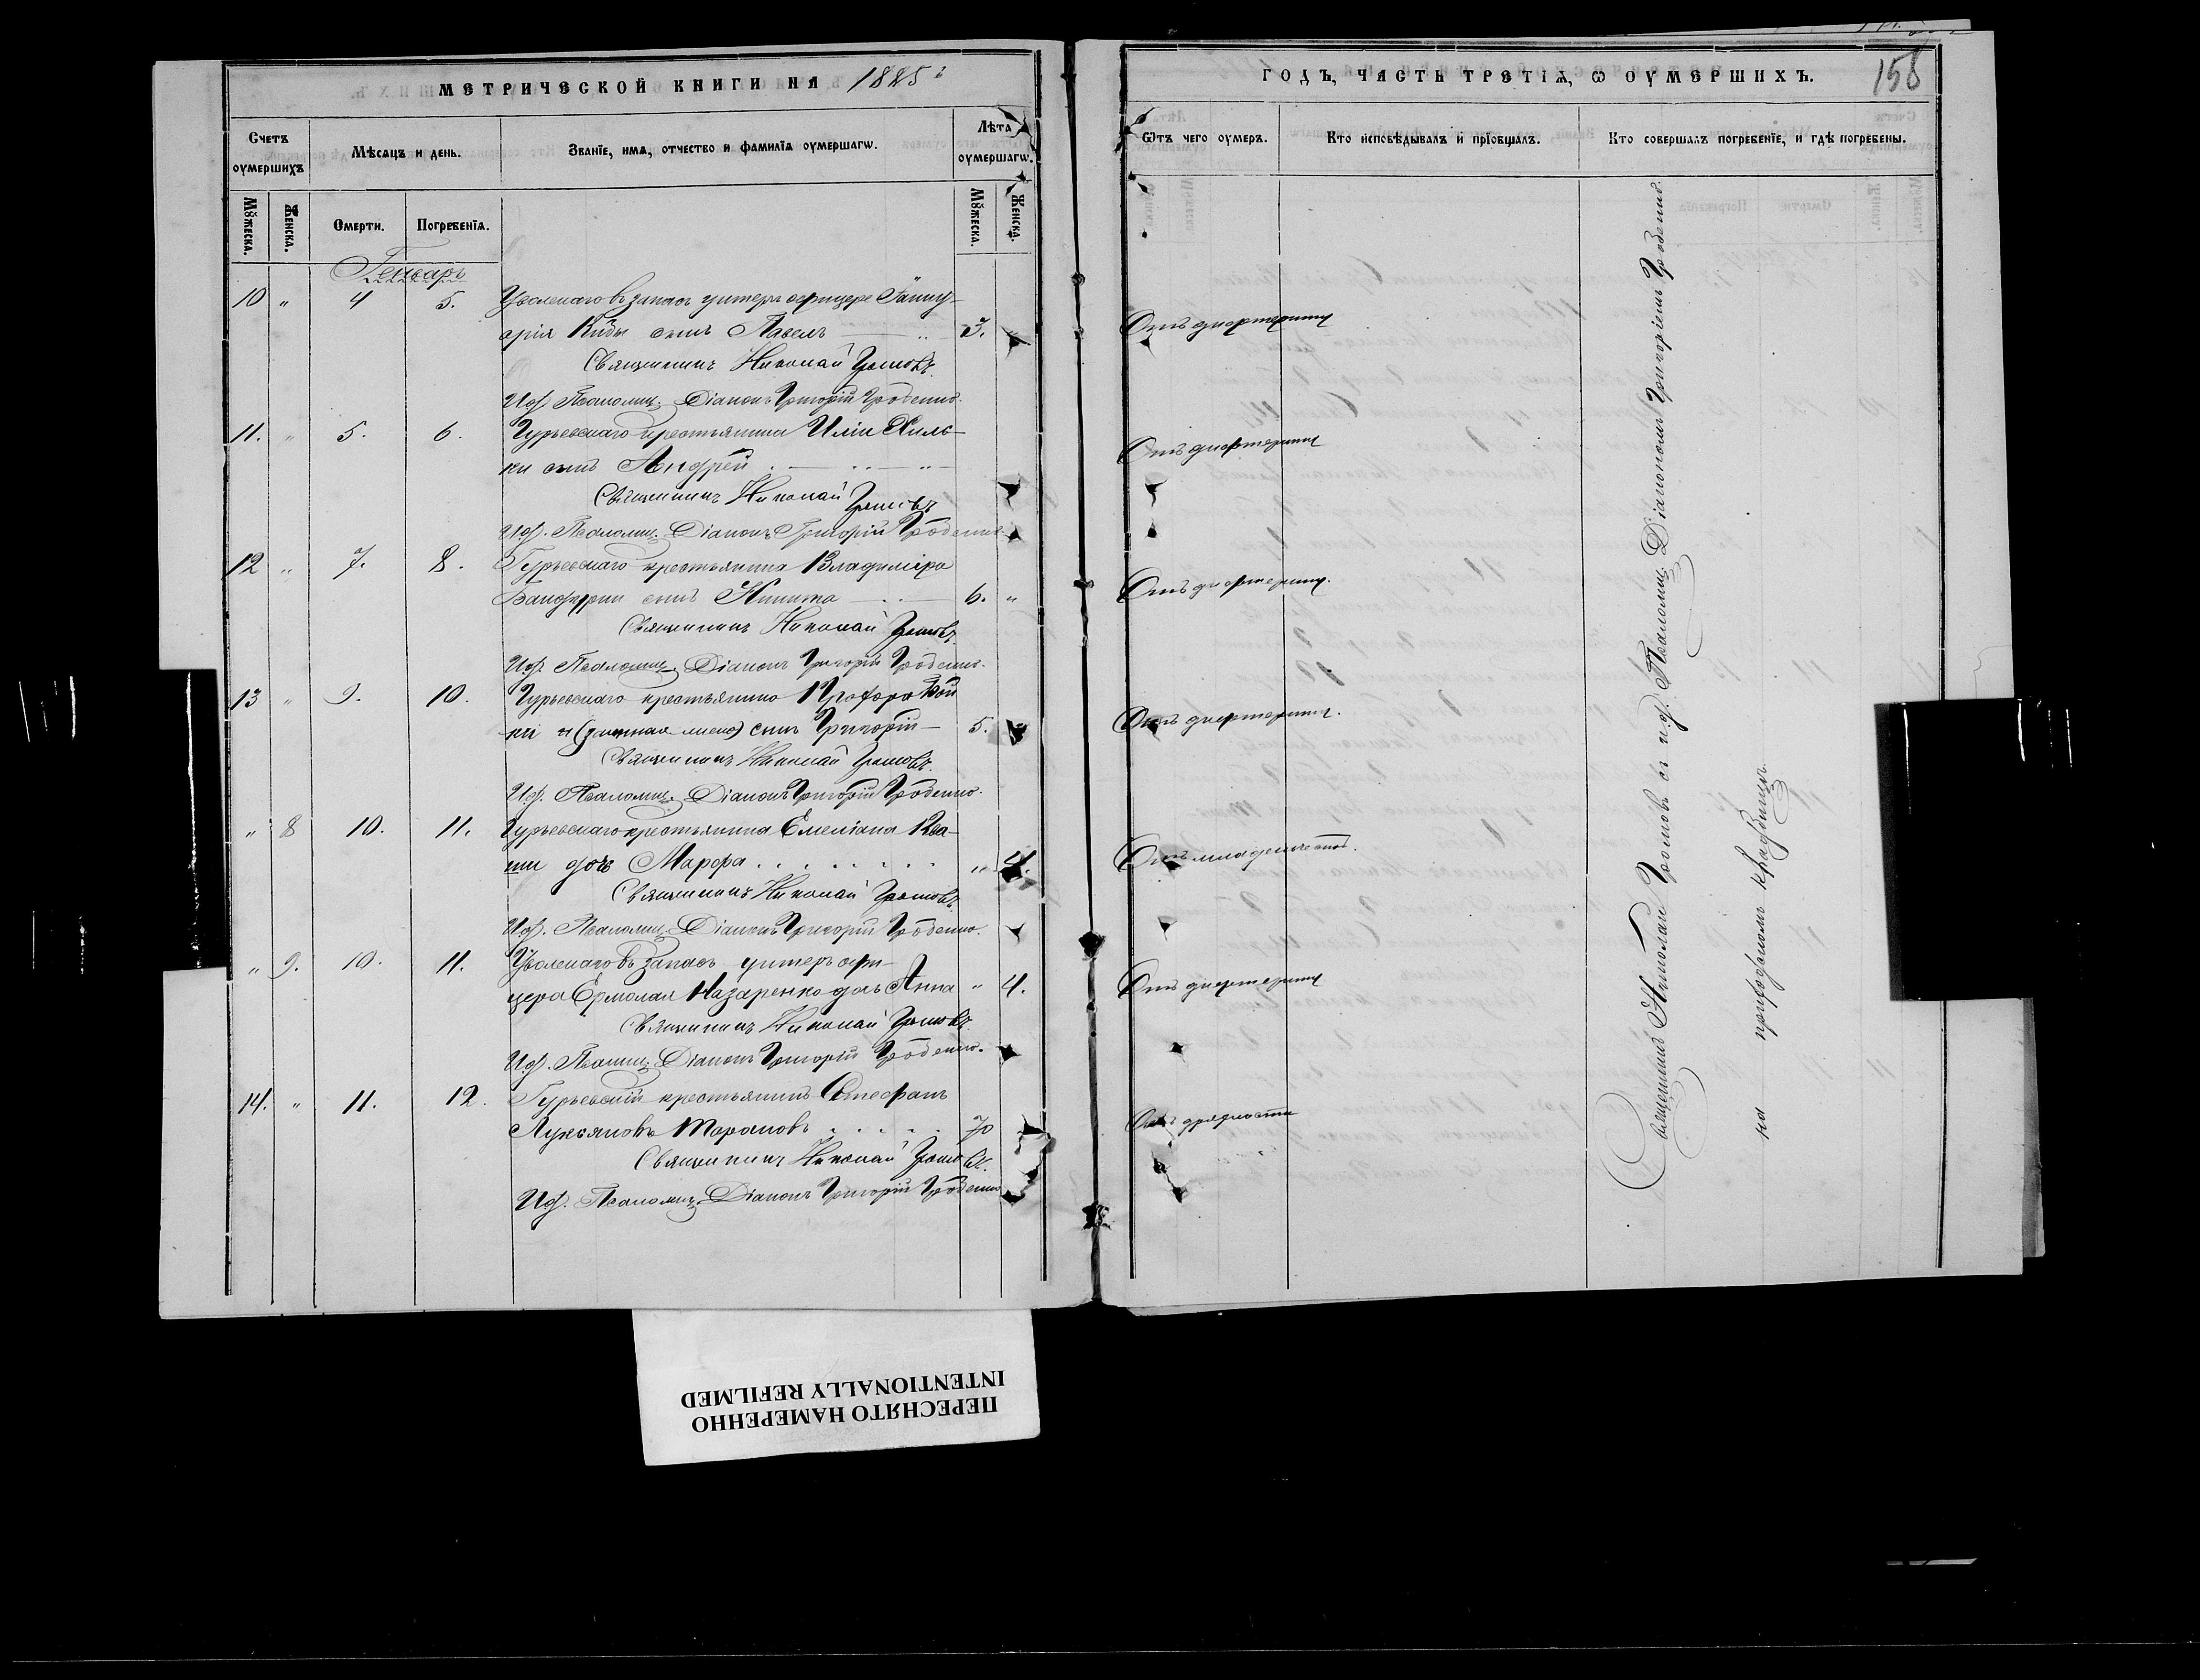 МЕТРИЧЕСКОЙ КНИГИ НА 1885й
Счетъ оумершихъ
Мѣсяцъ и день.
Званіе, имя, отчество и фамилія оумершагѡ.
Лѣта оумершагѡ.
Мꙋжеска.
Женска.
Смерти.
Погребенія.
Мꙋжеска.
Женска.
Генварь
10 " 4 5. Уволенаго въ запасъ унтеръ офицера Іанну-
арія Кибы сынъ Павелъ 3. "
Священникъ Николай Громовъ.
И.д. Псаломщ. Діаконъ Григорій Гробенко.
11. " 5. 6. Гурьевскаго крестьянина Иліи Хиль-
ки сынъ Андрей
Священникъ Николай Громовъ
И.д. Псаломщ. Діаконъ Григорій Гробенко
12 " 7. 8. Гурьевскаго крестьянина Владиміра
сынъ Никита 6. "
Священникъ Николай Громовъ.
И.д. Псаломщ. Діаконъ Григорій Гробенко.
13 " 9. 10. Гурьевскаго крестьянина
сынъ Григорій 5.
Священникъ Николай Громовъ.
И.д. Псаломщ. Діаконъ Григорій Гробенко.
" 8 10. 11. Гурьевскаго крестьянина Емеліана Ква-
ши дочь Марфа . . . . . . . " 4.
Священникъ Николай Громовъ.
И.д. Псаломщ. Діаконъ Григорій Гробенко.
" 9. 10. 11. Уволенаго въ запасъ унтеръ офи-
цера Ермолая Назаренко дочь Анна " 4.
Священникъ Николай Громовъ.
И.д. Псаломщ. Діаконъ Григорій Гробенко.
14. " 11. 12. Гурьевскій крестьянинъ Стефанъ
Лукьяновъ Тарановъ . . . . . 70
Священникъ Николай Громовъ.
И.д. Псаломщ. Діаконъ Григорій Гробенко
ГОДЪ, ЧАСТЬ ТРЕТІЯ, Ѡ ОУМЕРШИХЪ.
158
Ѿтъ чего оумеръ.
Кто исповѣдывалъ и пріобщалъ.
Кто совершалъ погребеніе, и гдѣ погребены.
Отъ дифтерита
Отъ дифтерита
Отъ дифтерита.
Отъ дифтерита.
Отъ младенческой.
Отъ дифтерита
Отъ дряхлости
Священникъ Николай Громовъ съ и.д. Псаломщ. Діакономъ Григоріемъ Гробенко
на приходскомъ кладбищѣ.
ПЕРЕСНЯТО НАМЕРЕННО
INTENTIONALLY REFILMED